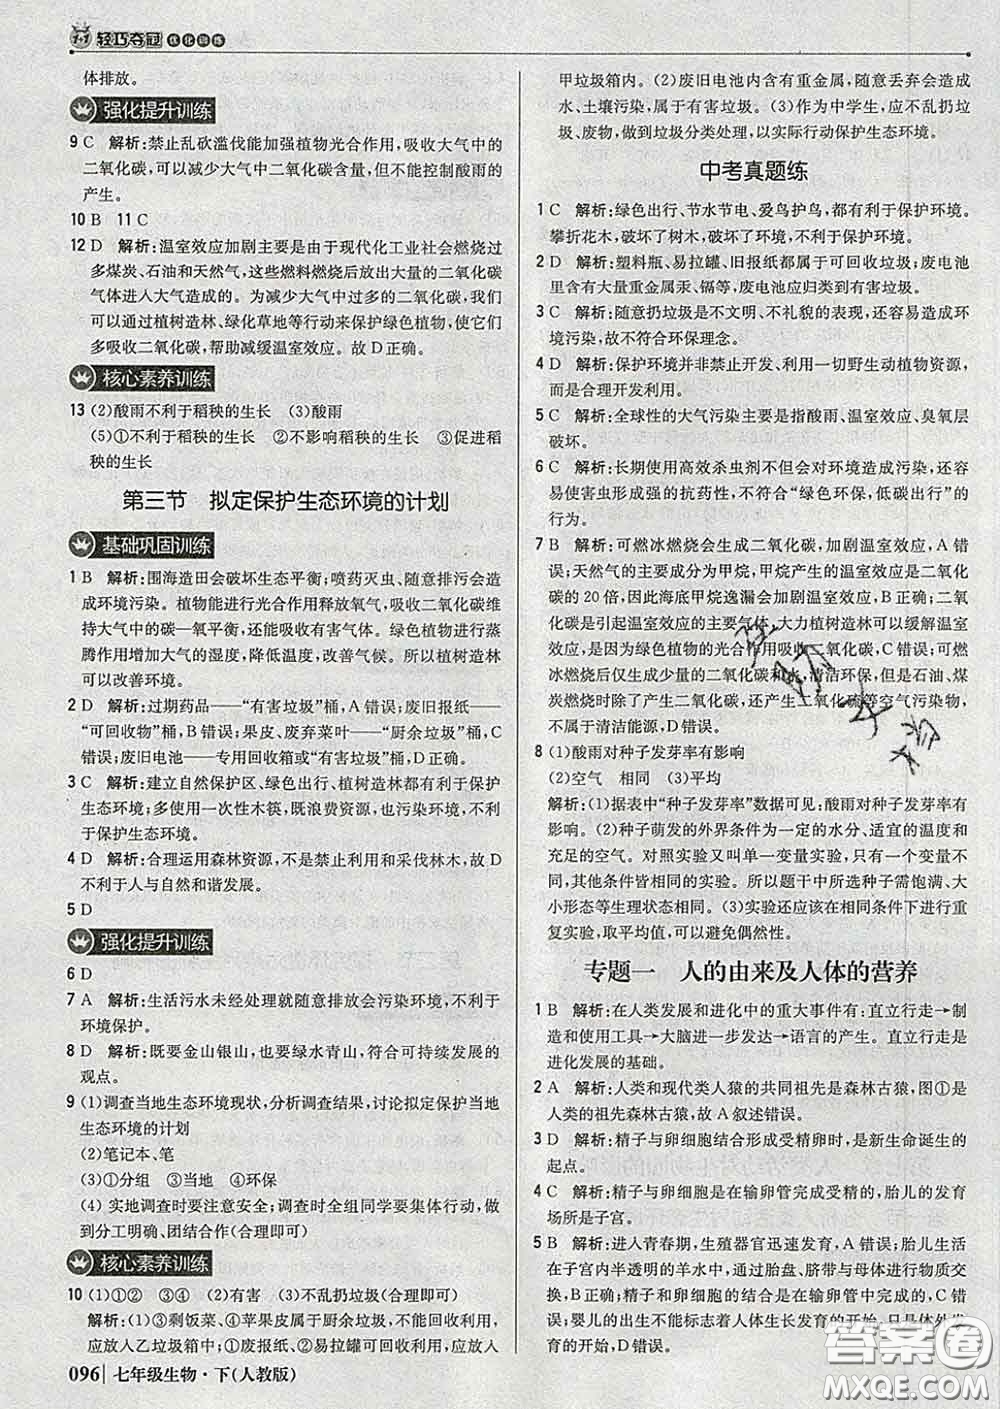 1+1 轻巧夺冠 优化训练
体排放。
强化提升训练
9 C 解析:禁止乱砍滥伐能加强植物光合作用,吸收大气中的
二氧化碳,可以减少大气中二氧化碳含量,但不能控制酸雨的
产生。
10 B 11 C
12 D 解析:温室效应加剧主要是由于现代化工业社会燃烧过
多煤炭、石油和天然气,这些燃料燃烧后放出大量的二氧化碳
气体进入大气造成的。为减少大气中过多的二氧化碳,我们
可以通过植树造林、绿化草地等行动来保护绿色植物,使它们
多吸收二氧化碳,帮助减缓温室效应。故D正确。
核心素养训练
13 (2)酸雨不利于稻秧的生长 (3)酸雨
(5)①不利于稻秧的生长 ②不影响稻秧的生长 ③促进稻
秧的生长
第三节 拟定保护生态环境的计划
基础巩固训练
1 B 解析:围海造田会破坏生态平衡;喷药灭虫、随意排污会造
成环境污染。植物能进行光合作用释放氧气,吸收二氧化碳维
持大气中的碳—氧平衡,还能吸收有害气体。绿色植物进行蒸
腾作用增加大气的湿度,降低温度,改善气候。所以植树造林
可以改善环境。
2 D 解析:过期药品——“有害垃圾”桶,A错误;废旧报纸——
“可回收物”桶,B错误;果皮、废弃菜叶——“厨余垃圾”桶,C
错误;废旧电池——专用回收箱或“有害垃圾”桶,D正确。
3 C 解析:建立自然保护区、绿色出行、植树造林都有利于保护
生态环境;多使用一次性木筷,既浪费资源,也污染环境,不利
于保护生态环境。
4 D 解析:合理运用森林资源,不是禁止利用和采伐林木,故D
不利于人与自然和谐发展。
5 D
强化提升训练
6 D
7 A 解析:生活污水未经处理就随意排放会污染环境,不利于
环境保护。
8 D 解析:既要金山银山,也要绿水青山,符合可持续发展的
观点。
9 (1)调查当地生态环境现状,分析调查结果,讨论拟定保护当地
生态环境的计划
(2)笔记本、笔
(3)①分组 ③当地 ④环保
(4) 实地调查时要注意安全;调查时要保持良好的秩序,做
到分工明确、团结合作(合理即可)
核心素养训练
10 (1)①② ③④ (2)有害 (3)不乱扔垃圾(合理即可)
解析:(1)③剩饭菜、④苹果皮属于厨余垃圾,不可回收利用,
应放入乙垃圾箱内;①废报纸、②易拉罐可以回收利用,应放入
096 七年级生物·下(人教版)
甲垃圾箱内。(2)废旧电池内含有重金属,随意丢弃会造成
水、土壤污染,属于有害垃圾。(3)作为中学生,应不乱扔垃
圾、废物,做到垃圾分类处理,以实际行动保护生态环境。
中考真题练
1 C 解析:绿色出行、节水节电、爱鸟护鸟,都有利于保护环境。
攀折花木,破坏了树木,破坏了环境,不利于保护环境。
2 D 解析:塑料瓶、易拉罐、旧报纸都属于可回收垃圾;废电池
里含有大量重金属汞、镉等,废电池应归类到有害垃圾。
3 C 解析:随意扔垃圾是不文明、不礼貌的表现,还容易造成环
境污染,故不符合环保理念。
4 D 解析:保护环境并非禁止开发、利用一切野生动植物资源,
而是合理开发利用。
5 C 解析:全球性的大气污染主要是指酸雨、温室效应、臭氧层
破坏。
6 C 解析:长期使用高效杀虫剂不但会对环境造成污染,还容易
使害虫形成强的抗药性,不符合“绿色环保,低碳出行”的
行为。
7 B 解析:可燃冰燃烧会生成二氧化碳,加剧温室效应,A错
误;天然气的主要成分是甲烷,甲烷产生的温室效应是二氧化
碳的20倍,因此海底甲烷逸漏会加剧温室效应,B正确;二氧
化碳是引起温室效应的主要气体,大力植树造林可以缓解温室
效应,是因为绿色植物的光合作用吸收二氧化碳,C错误;可燃
冰燃烧后仅生成少量的二氧化碳和水,清洁环保,但是石油、煤
炭燃烧时除了产生二氧化碳,还产生二氧化硫等空气污染物,
不属于清洁能源,D错误。
8 (1)酸雨对种子发芽率有影响
(2)空气 相同 (3)平均
解析:(1)据表中“种子发芽率”数据可见:酸雨对种子发芽率有
影响。(2)种子萌发的外界条件为一定的水分、适宜的温度和
充足的空气。对照实验又叫单一变量实验,只有一个变量不
同,其他条件都相同的实验。所以题干中所选种子需饱满、大
小形态等生理状态相同。(3)实验还应该在相同条件下进行重
复实验,取平均值,可以避免偶然性。
专题一 人的由来及人体的营养
1 B 解析:在人类发展和进化中的重大事件有:直立行走→制
造和使用工具→大脑进一步发达→语言的产生。直立行走是
进化发展的基础。
2 A 解析:人类和现代类人猿的共同祖先是森林古猿,图①是
人类的祖先森林古猿,故A叙述错误。
3 D 解析:精子与卵细胞结合形成受精卵时,是新生命诞生的
起点。
4 C 解析:精子与卵细胞是在输卵管完成受精的,胎儿的发育
场所是子宫。
5 B 解析:进入青春期,生殖器官迅速发育,A错误;胎儿生活
在子宫内半透明的羊水中,通过胎盘、脐带与母体进行物质交
换,B正确;精子和卵细胞的结合是在输卵管中完成的,C错
误;婴儿的出生不能标志着人体生长发育的开始,只是体外发
育的开始,D错误。
答案圈
MXQE.COM